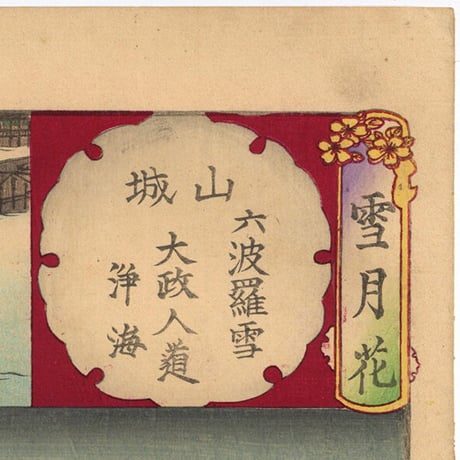 雪月花
山城
六波羅雪
大政人道
浄海